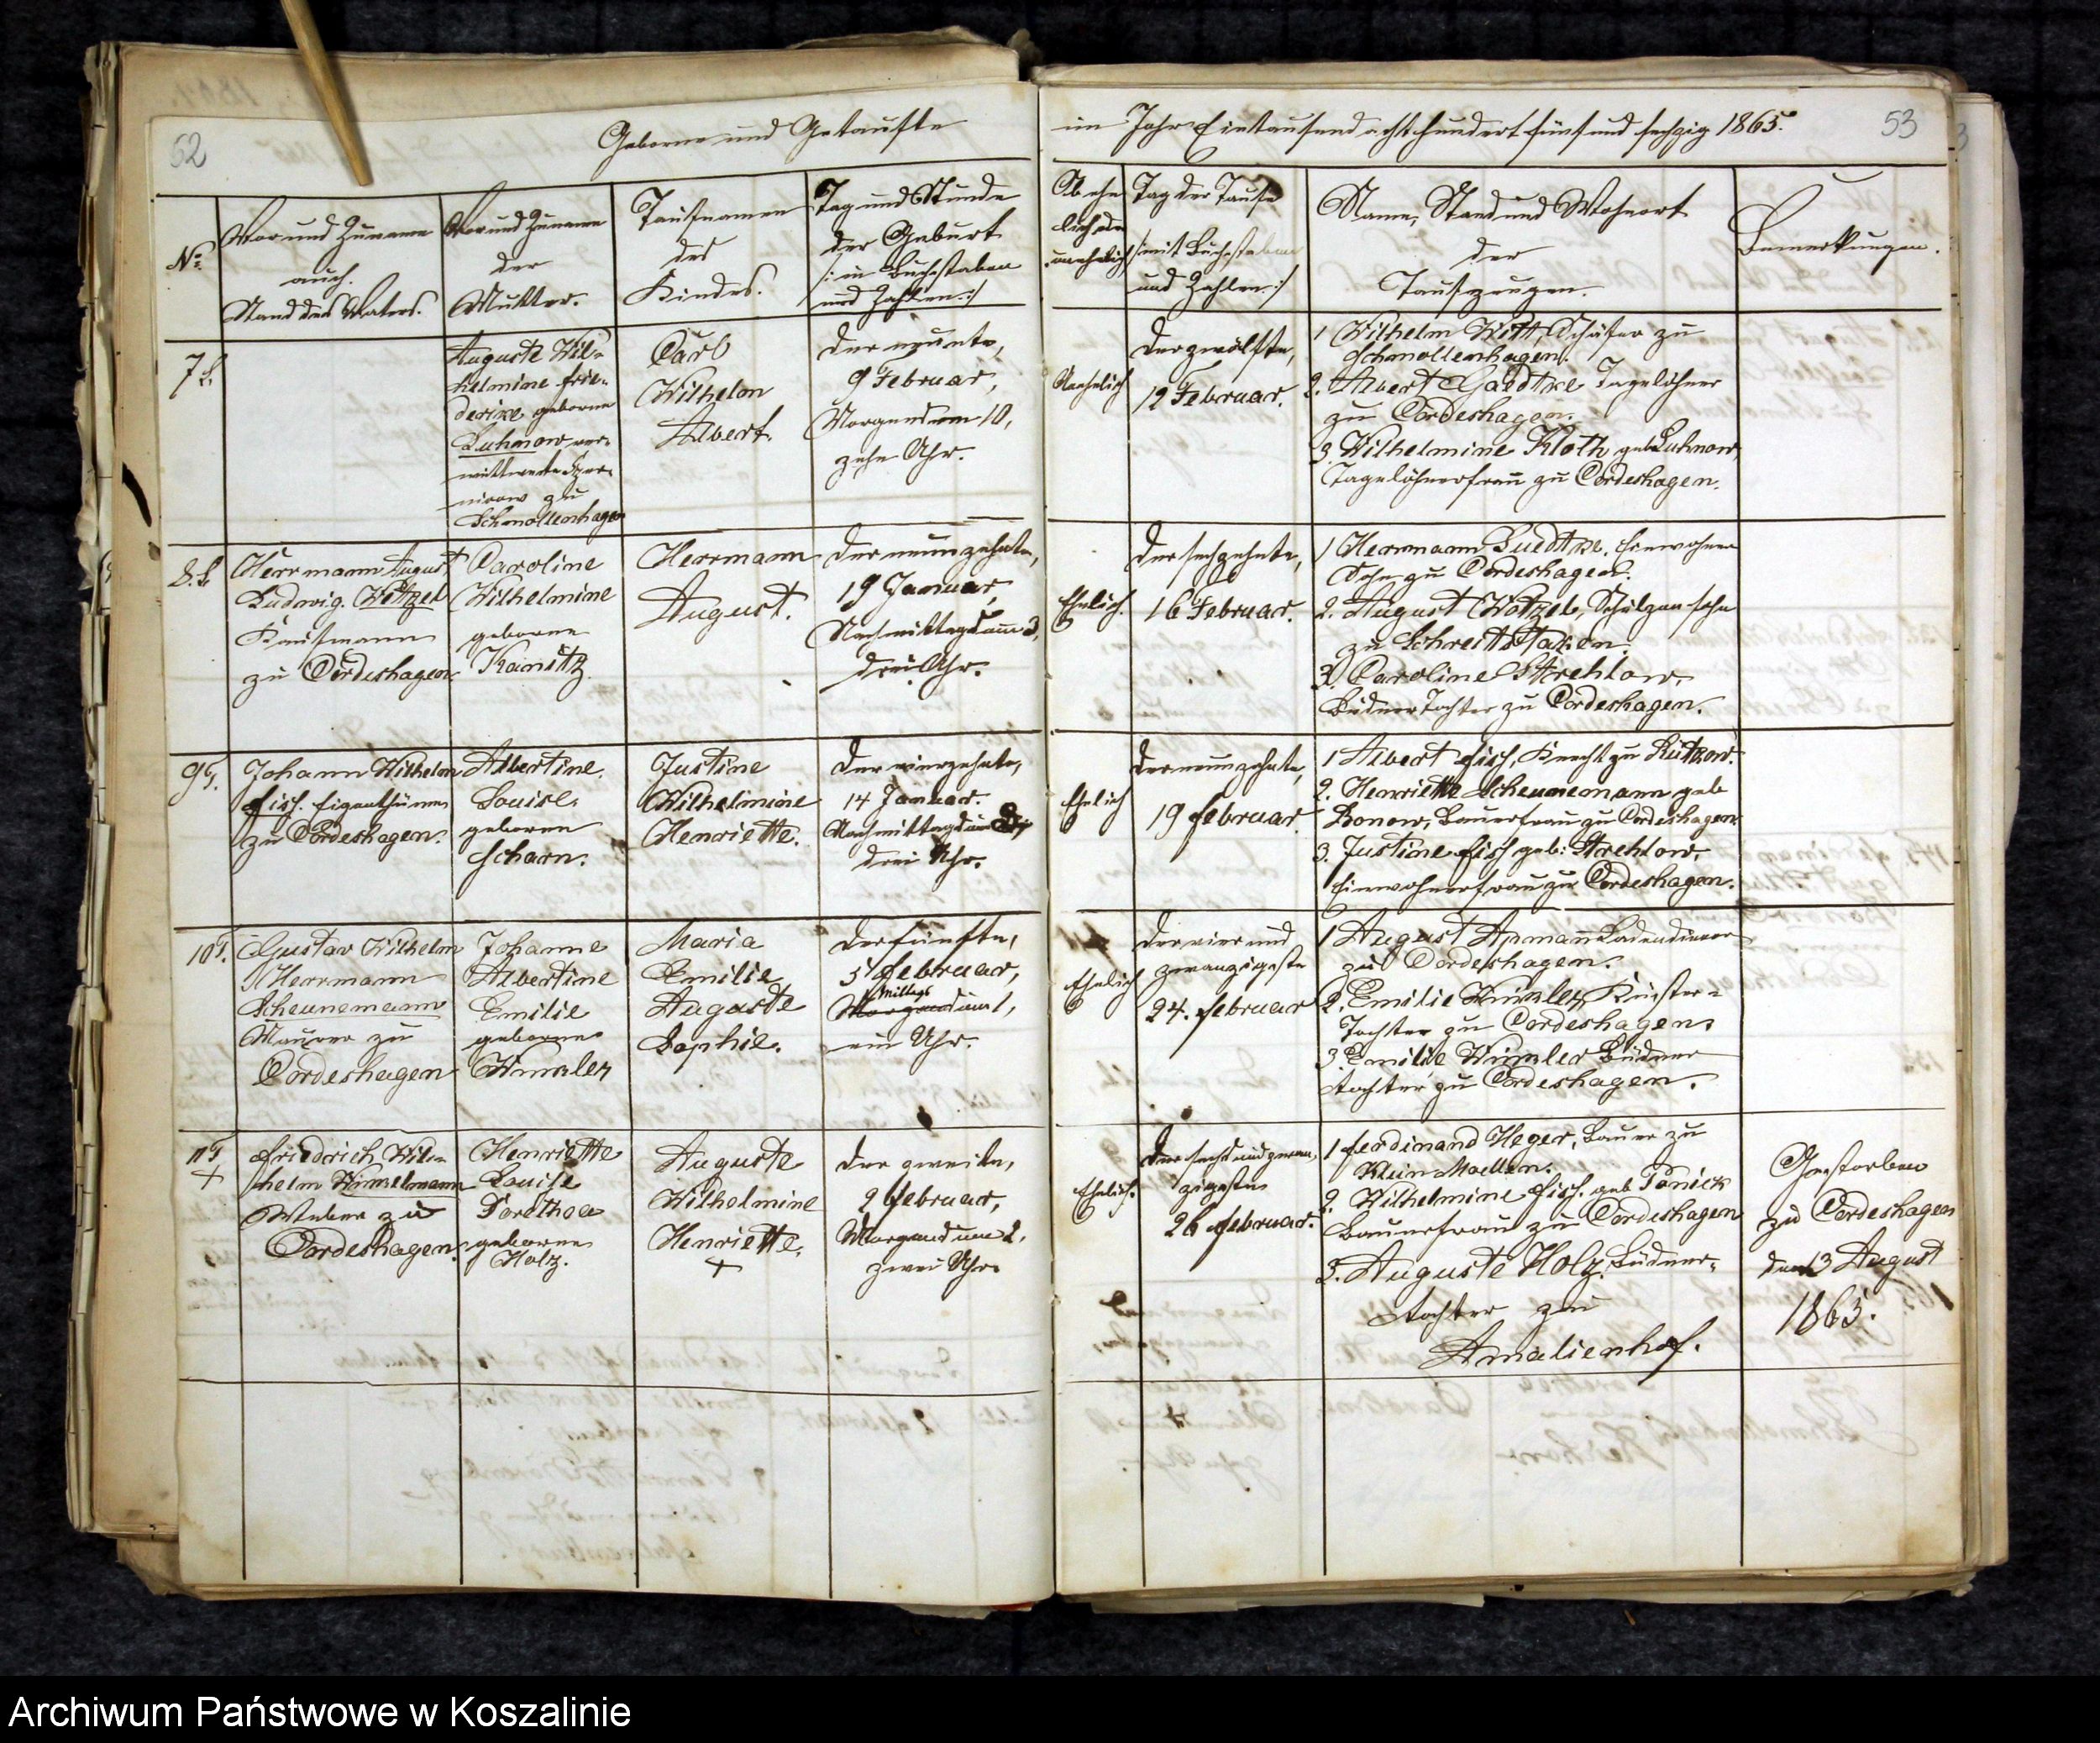 52
Geborne und Getaufte
No.
Vor und Zuname
auch.
Stand des Vaters.
Vor und Zuname
der
Mutter.
Taufnamen
des
Kindes.
Tag und Stunde
der Geburt
/: in Buchstaben
und Zahlen :/
7
Auguste Wil-
helmine Frie-
derike geborne
Luhnow ver-
wittwete
zu
Schmollenhagen
Carl
Wilhelm
Albert.
Der neunte,
9 Februar,
Morgens um 10,
zehn Uhr.
8.
Herrmann August
Ludwig Wetzel
Kaufmann
zu Cordeshagen.
Caroline
Wilhelmine
geborne
Kanitz
Herrmann
August.
Der neunzehnte,
19 Januar,
Nachmittags um 3,
drei Uhr.
9
Johann Wilhelm
Fisch. Eigenthümer
zu Cordeshagen.
Albertine
Louise
geborne
Scharn.
Justine
Wilhelmine
Henriette.
Der vierzehnte,
14 Januar.
Nachmittags um 3,
drei Uhr.
10
Gustav Wilhelm
Herrmann
Scheunemann
Maurer zu
Cordeshagen
Johanne
Albertine
Emilie
geborne
Winkler
Maria
Emilie
Auguste
Sophie.
Der fünfte,
5 Februar,
Mittags
Morgens um 1,
ein Uhr.
11
+
Friedrich Wil-
helm Winkelmann
Weber zu
Cordeshagen.
Henriette
Louise
Dorothea
geborne
Holz.
Auguste
Wilhelmine
Henriette.
+
Der zweite,
2 Februar,
Morgens um 2,
zwei Uhr.
im Jahr Eintausend acht hundert fünf und sechzig 1865.
53
Ob ehe
lich oder
unehelich
Tag der Taufe
/: mit Buchstaben
und Zahlen :/
Name, Stand und Wohnort
der
Taufzeugen.
Bemerkungen.
Unehelich
Der zwölfte,
12 Februar.
1 Wilhelm Witt, Schäfer zu
Schmollenhagen.
2. Albert Gaedtke Tagelöhner
zu Cordeshagen.
3. Wilhelmine Kloth geb. Luhnow,
Tagelöhnerfrau zu Cordeshagen.
Ehelich.
Der sechzehnte,
16 Februar.
1 Herrmann Luedtke, Einwohner
Sohn zu Cordeshagen.
2. August Wetzel, Schulzensohn
zu Schreitstaken.
3. Caroline Strehlow,
Büdner Tochter zu Cordeshagen.
Ehelich
Der neunzehnte,
19 Februar.
1 Albert Fisch, Knecht zu
2. Henriette Scheunemann geb
Bonow, Bauerfrau zu Cordeshagen
3. Justine Fisch geb: Strehlow,
Einwohnerfrau zu Cordeshagen.
Ehelich
Der vier und
zwanzigste
24. Februar
1 August Apmann Ladendiener
zu Cordeshagen.
2. Emilie Winkler, Küster-
Tochter zu Cordeshagen.
3. Emilie Winkler Büdner
Tochter zu Cordeshagen.
Ehelich.
Der sechs und zwan-
zigste
26 Februar.
1 Ferdinand Heger, Bauer zu
Klein Moellen.
2. Wilhelmine Fisch. geb.
Bauerfrau zu Cordeshagen
3. Auguste Holz, Büdner-
tochter zu
Amalienhof.
Gestorben
zu Cordeshagen
den 13 August
1865.
Archiwum Państwowe w Koszalinie